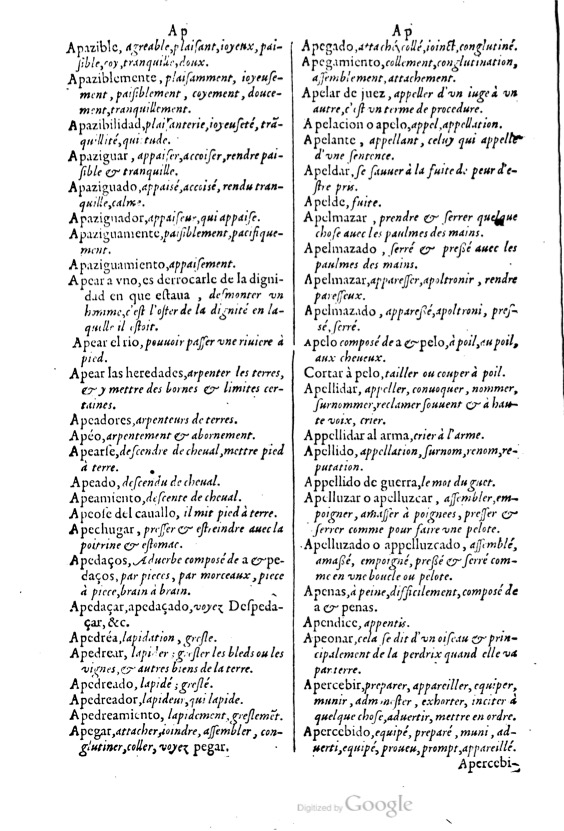 Ap
Apazible, agreable, plaisant, ioyeux, pai-
sible, coy, tranquille, doux.
Apaziblemente, plaisamment, ioyeuse-
ment, paisiblement, coyement, douce-
ment, tranquillement.
Apazibilidad, plaisanterie, ioyeuseté, trã-
quillité, quietude.
Apaziguar, appaiser, accoiser, rendre pai-
sible & tranquille.
Apaziguado, appaisé, accoisé, rendu tran-
quille, calme.
Apaziguador, appaiseur, qui appaise.
Apaziguamente, paisiblement, pacifique-
ment.
Apaziguamiento, appaisement.
Apear a vno, es derrocarle de la digni-
dad en que estaua, desmonter vn
homme, c'est l'oster de la dignité en la-
quelle il estoit.
Apear el rio, pouuoir passer vne riuiere à
pied.
Apear las heredades, arpenter les terres,
& y mettre des bornes & limites cer-
taines.
Apeadores, arpenteurs de terres.
Apéo, arpentement & abornement.
Apearse, descendre de cheual, mettre pied
à terre.
Apeado, descendu de cheual.
Apeamiento, descente de cheual.
Apeose del cauallo, il mit pied à terre.
Apechugar, presser & estreindre auec la
poitrine & estomac.
Apedaços, Aduerbe composé de a & pe-
daços, par pieces, par morceaux, piece
à piece, brain à brain.
Apedaçar, apedaçado, voyez Despeda-
çar, &c.
Apedréa, lapidation, gresle.
Apedrear, lapider; gresler les bleds ou les
vignes, & autres biens de la terre.
Apedreado, lapidé; greslé.
Apedreador, lapideur, qui lapide.
Apedreamiento, lapidement, greslemẽt.
Apegar, attacher, ioindre, assembler, con-
glutiner, coller, voyez pegar.
Ap
Apegado, attaché, collé, ioinct, conglutiné.
Apegamiento, collement, conglutination,
assemblement, attachement.
Apelar de juez, appeller d'vn iuge à vn
autre, c'est vn terme de procedure.
Apelacion o apelo, appel, appellation.
Apelante, appellant, celuy qui appelle
d'vne sentence.
Apeldar, se sauuer à la fuite de peur d'e-
stre pris.
Apelde, fuite.
Apelmazar, prendre & serrer quelque
chose auec les paulmes des mains.
Apelmazado, serré & pressé auec les
paulmes des mains.
Apelmazar, apparesser, apoltronir, rendre
paresseux.
Apelmazado, apparessé, apoltroni, pres-
sé, serré.
Apelo composé de a & pelo, à poil, au poil,
aux cheueux.
Cortar à pelo, tailler ou couper à poil.
Apellidar, appeller, conuoquer, nommer,
surnommer, reclamer souuent & à hau-
te voix, crier.
Appellidar al arma, crier à l'arme.
Apellido, appellation, surnom, renom, re-
putation.
Appellido de guerra, le mot du guet.
Apelluzar o apelluzcar, assembler, em-
poigner, amasser à poignees, presser &
serrer comme pour faire vne pelote.
Apelluzado o appelluzcado, assemblé,
amassé, empoigné, pressé & serré com-
me en vne boucle ou pelote.
Apenas, à peine, difficilement, composé de
a & penas.
Apendice, appentis.
Apeonar, cela se dit d'vn oiseau & prin-
cipalement de la perdrix quand elle va
par terre.
Apercebir, preparer, appareiller, equiper,
munir, admonester, exhorter, inciter à
quelque chose, aduertir, mettre en ordre.
Apercebido, equipé, preparé, muni, ad-
uerti, equipé, proueu, prompt, appareillé.
Apercebi-
Digitized by Google